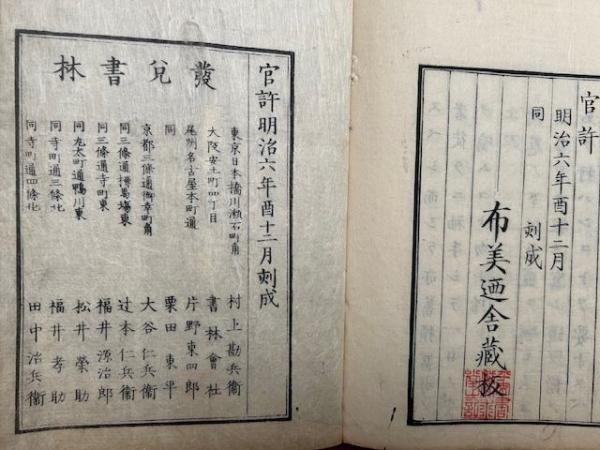 官許
明治六年酉十二月
同 刻成
布美廼舍藏板
官許明治六年酉十二月刻成
發兌書林
東京日本橋川瀬石町角 村上勘兵衞
大阪安土町四丁目 書林會社
尾州名古屋本町通 片野東四郎
同 栗田東平
京都三條通御幸町角 大谷仁兵衞
同三條通柳馬場東 辻本仁兵衞
同三條通寺町東 福井源治郎
同丸太町通鴨川東 松井榮助
同寺町通三條北 福井孝助
同寺町通四條北 田中治兵衞